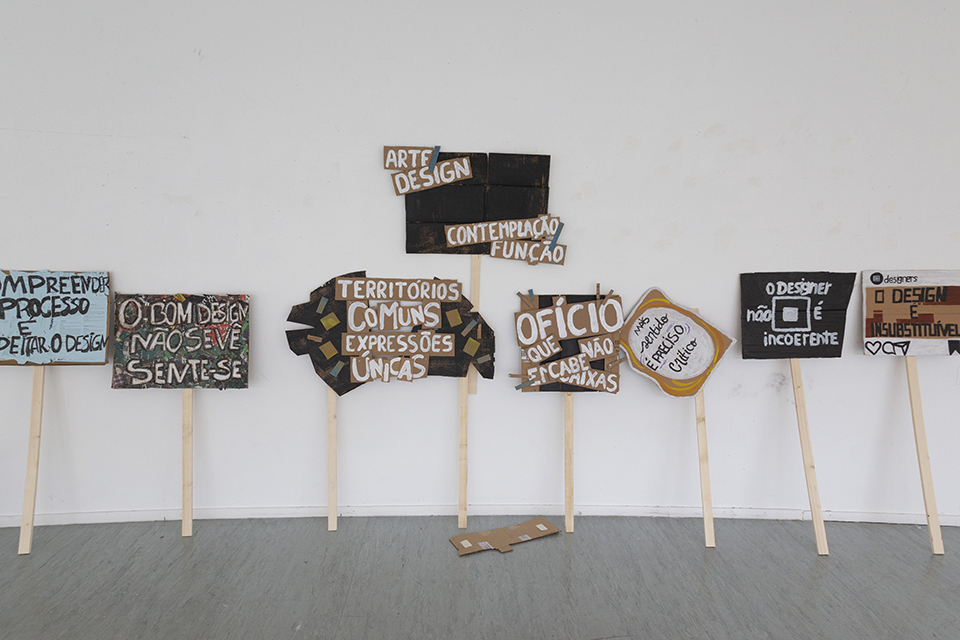 OMPREENDER
PROCESSO
É
PEITAR O DESIGN
O BOM DESIGN
NÃO SE VÊ
SENTE-SE
ARTE
DESIGN
CONTEMPLAÇÃO
FUNÇÃO
TERRITÓRIOS
COMUNS
EXPRESSÕES
ÚNICAS
OFÍCIO
QUE NÃO
CABE
CAIXAS
sentido
É PRECISO
Crítico
O DESIGNER
não é
incoerente
designers
O DESIGN
É
INSUBSTITUÍVEL